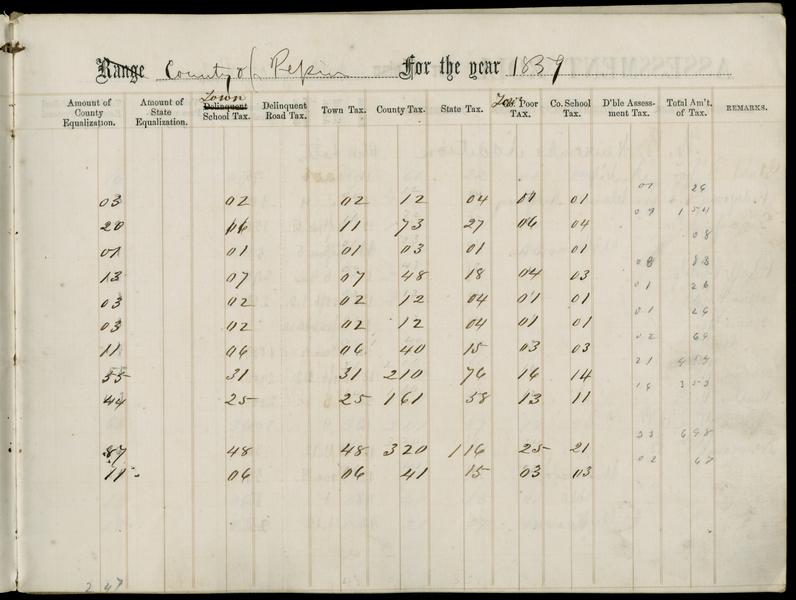 Range County of Pepin For the year 1859
Town
Amount of County Equalization. Amount of State Equalization. Delinquent School Tax. Delinquent Road Tax. Town Tax. County Tax. State Tax. Poor TAX. Co. School Tax. D'ble Assess-ment Tax. Total Am't. of Tax. REMARKS.
03 02 02 12 04 01 01 01 26
20 06 11 73 27 06 04 07 1 54
01 01 01 03 01 01 08
13 07 07 48 18 04 03 08
03 02 02 12 04 01 01 01 26
03 02 02 12 04 01 01 01 26
11 06 06 40 15 03 03 02
55 31 31 210 76 16 14 21
44 25 25 161 58 13 11 3 53
87 48 48 320 116 25 21 33 6 98
11 06 06 41 15 03 03 02 67
2 47